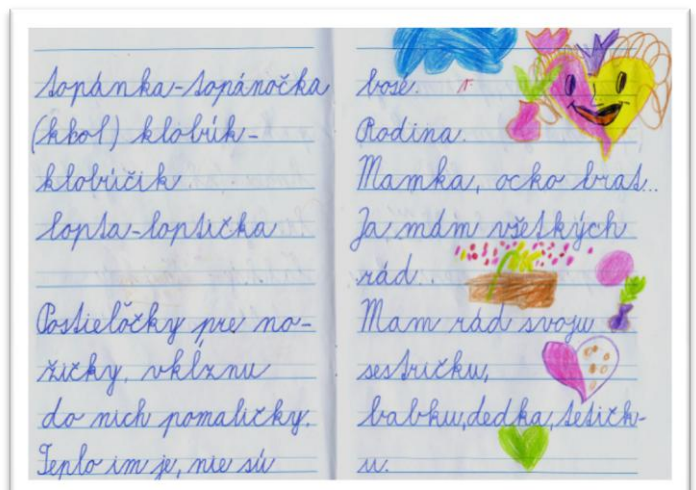 topánka-topánočka
(kbol) klobúk-
klobúčik
lopta-loptička
Postieľočky pre no-
žičky, vkĺznu
do nich pomaličky.
Teplo im je, nie sú
bosé.
Rodina.
Mamka, ocko brat...
Ja mám všetkých
rád..
Mam rád svoju
sestričku,
babku,dedka,tetičk-
u.